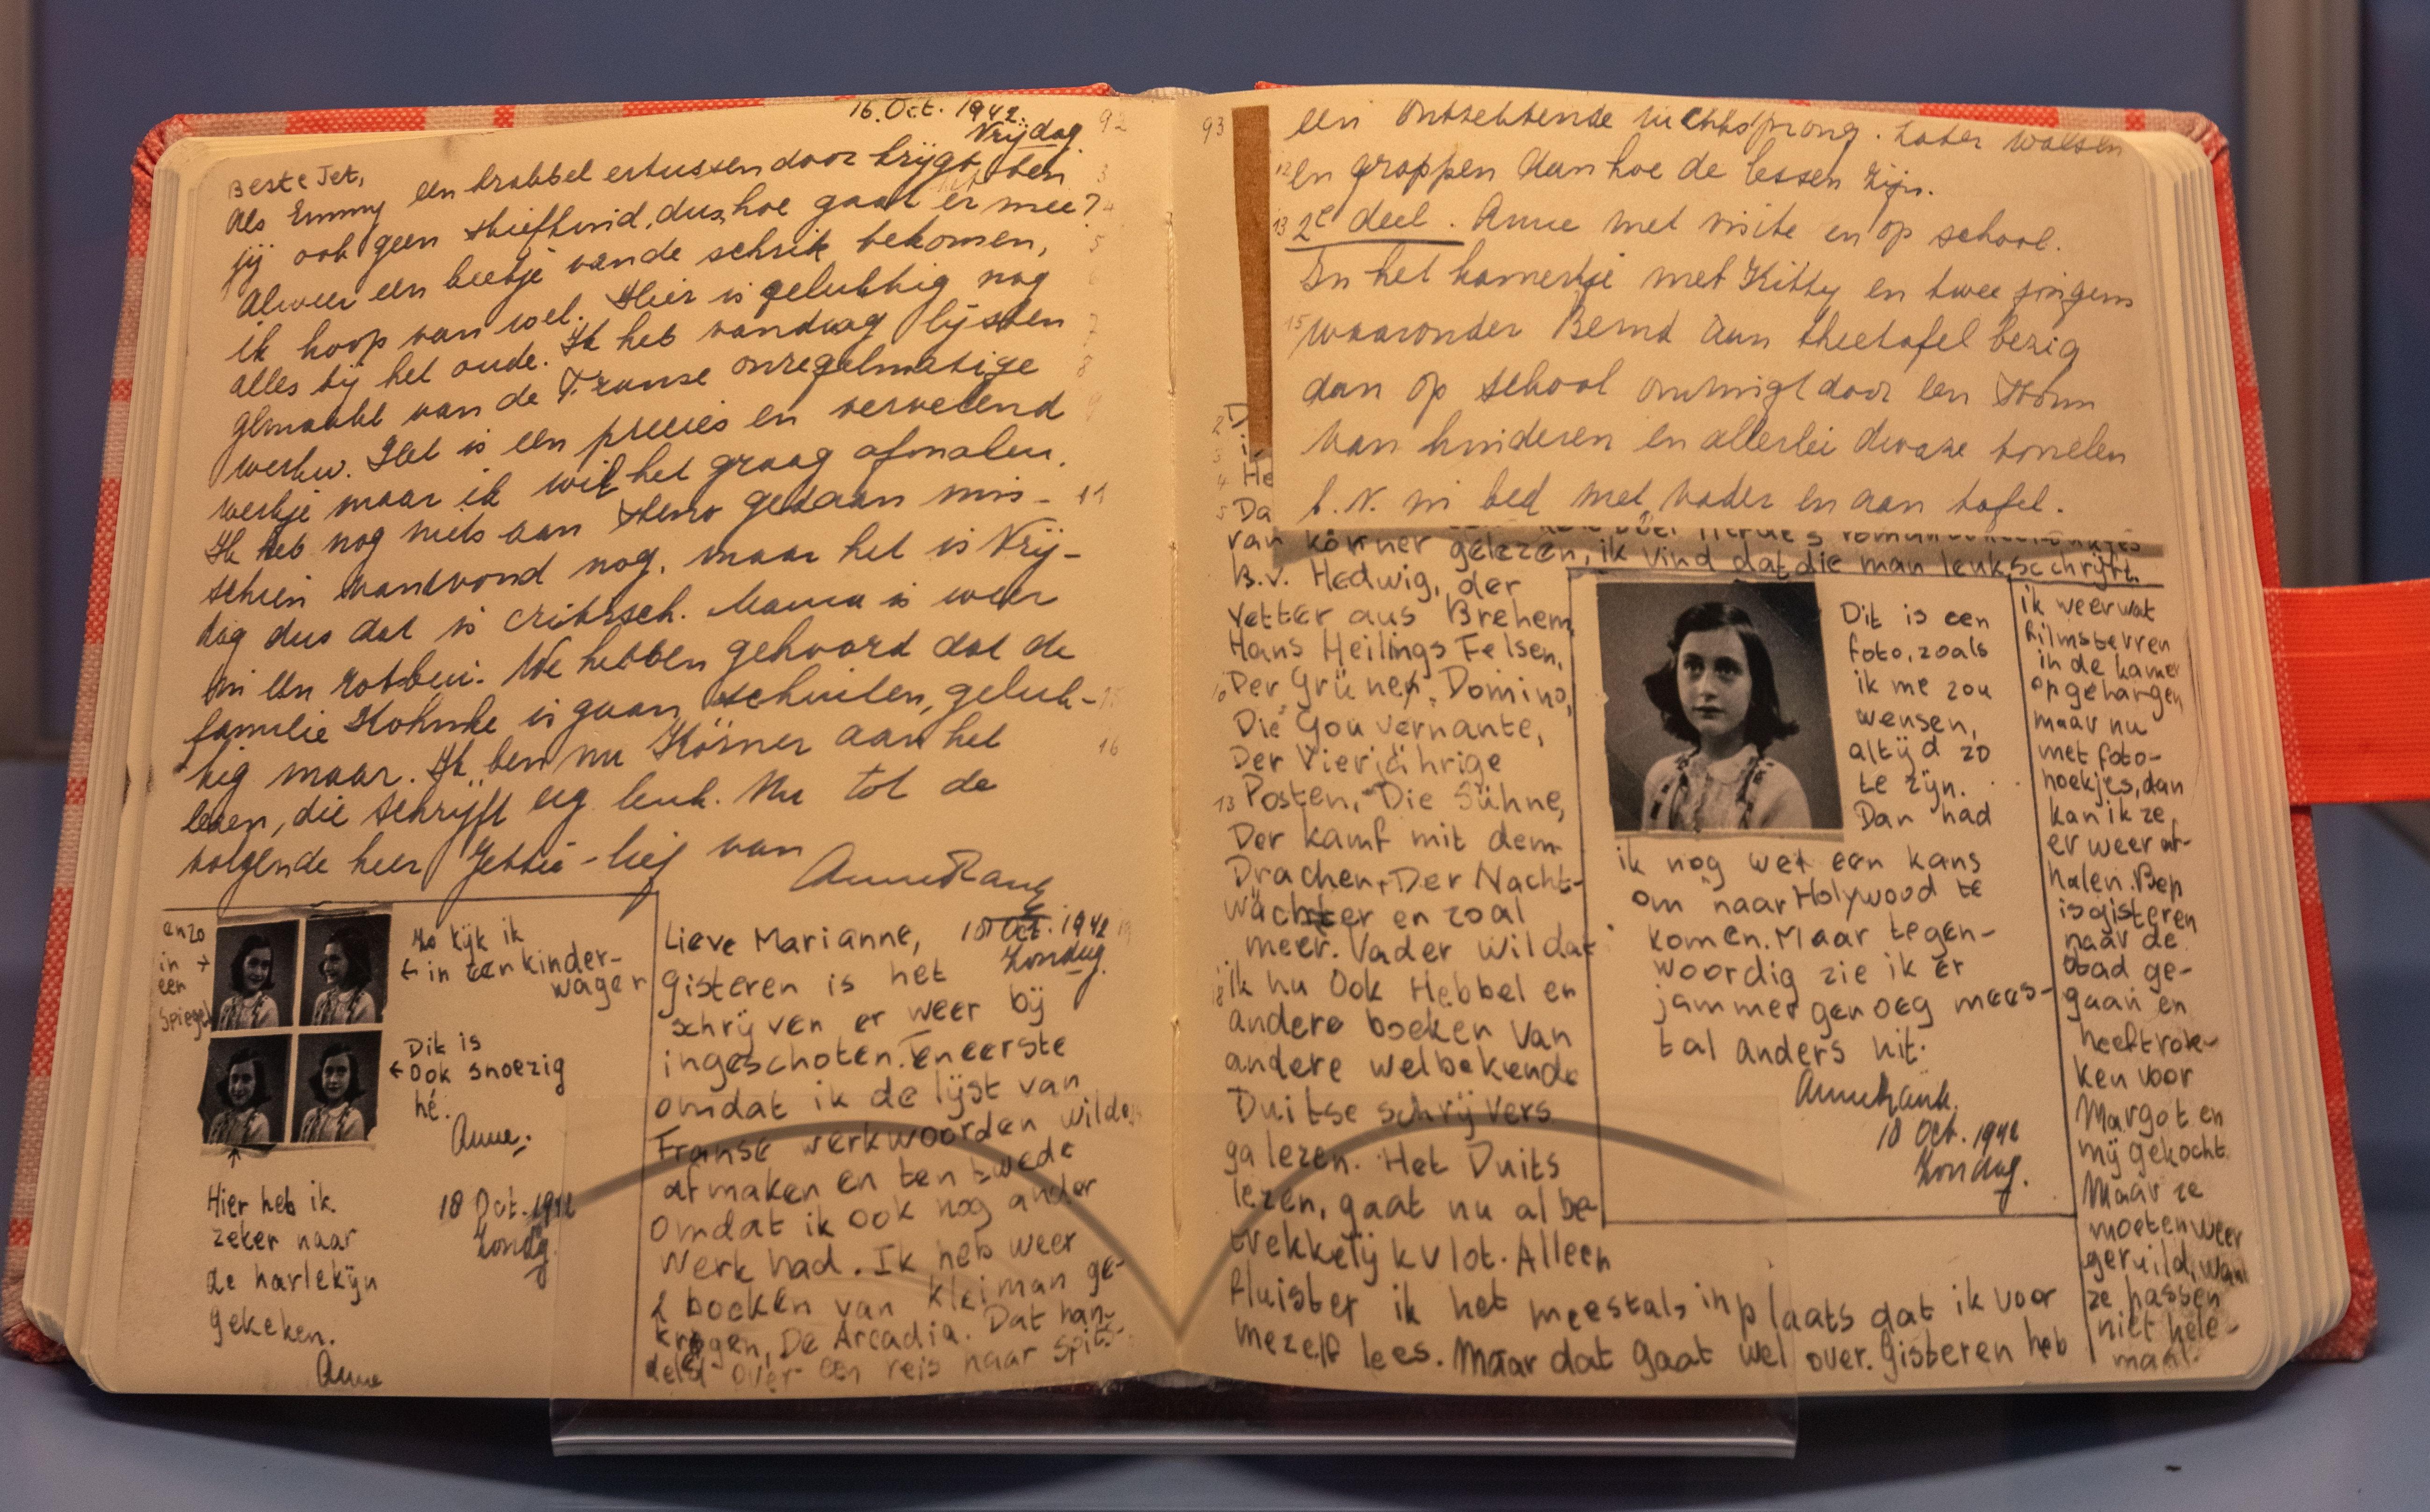 16. Oct. 1942.
Vrijdag.
92
Beste Jet,
Als Emmy een krabbel ertussen door krijgt, ben
jij ook geen stiefkind, dus hoe gaat het er mee?
Alweer een beetje van de schrik bekomen,
ik hoop van wel. Hier is gelukkig nog
alles bij het oude. Ik heb vandaag lijsten
gemaakt van de Franse onregelmatige
werkw. Het is een precies en vervelend
werkje maar ik wil het graag afmaken.
Ik heb nog niets aan steno gedaan mis-
schien vanavond nog, maar het is Vrij-
dag dus dat is critisch. Mama is weer
in een rotbui. We hebben gehoord dat de
familie Kohnke is gaan schuilen, geluk-
kig maar. Ik ben nu Körner aan het
lezen, die schrijft erg leuk. Nu tot de
volgende keer Jettie-lief van
Anne Frank
enzo
in →
een
spiegel
Zo kijk ik
← in een kinder-
wagen
Dit is
← ook snoezig
hé.
Anne.
↑
Hier heb ik
zeker naar
de harlekijn
gekeken.
Anne
18 Oct. 1942
Zondag.
Lieve Marianne,
18 Oct. 1942
Zondag.
Gisteren is het
schrijven er weer bij
ingeschoten. Ten eerste
omdat ik de lijst van
Franse werkwoorden wilde
afmaken en ten twede
omdat ik ook nog ander
werk had. Ik heb weer
2 boeken van Kleiman ge-
kregen, De Arcadia. Dat han-
deld over een reis naar Spits-
93
een ontzettende luchtsprong. Later walsen
en grappen dan hoe de lessen zijn.
2e deel. Anne met visite en op school.
In het kamertje met Kitty en twee jongens
waaronder Bernd aan theetafel bezig
dan op school omringt door een stroom
van kinderen en allerlei dwaze tonelen
b.v. in bed met vader en aan tafel.
D
i
He
Da
van Körner gelezen, ik vind dat die man leuk schrijft.
B.v. Hedwig, der
Vetter aus Brehem,
Hans Heilings Felsen,
Der Grüne Domino,
Die Gouvernante,
Der Vierjährige
Posten, Die Sühne,
Der Kamf mit dem
Drachen, Der Nacht-
wächter en zoal
meer. Vader wil dat
ik nu ook Hebbel en
andere boeken van
andere welbekende
Duitse schrijvers
ga lezen. Het Duits
lezen, gaat nu al be-
trekkelijk vlot. Alleen
fluister ik het meestals inplaats dat ik voor
mezelf lees. Maar dat gaat wel over. Gisteren heb
Dit is een
foto, zoals
ik me zou
wensen,
altijd zo
te zijn.
Dan had
ik nog wel een kans
om naar Holywood te
komen. Maar tegen-
woordig zie ik er
jammer genoeg mees-
tal anders uit.
Anne Frank.
18 Oct. 1942
Zondag.
ik weer wat
filmsterren
in de kamer
opgehangen
maar nu
met foto-
hoekjes, dan
kan ik ze
er weer af-
halen. Bep
is gisteren
naar de
stad ge-
gaan en
heeft rok-
ken voor
Margot en
mij gekocht.
Maar ze
moeten weer
geruild, want
ze passen
niet hele-
maal.